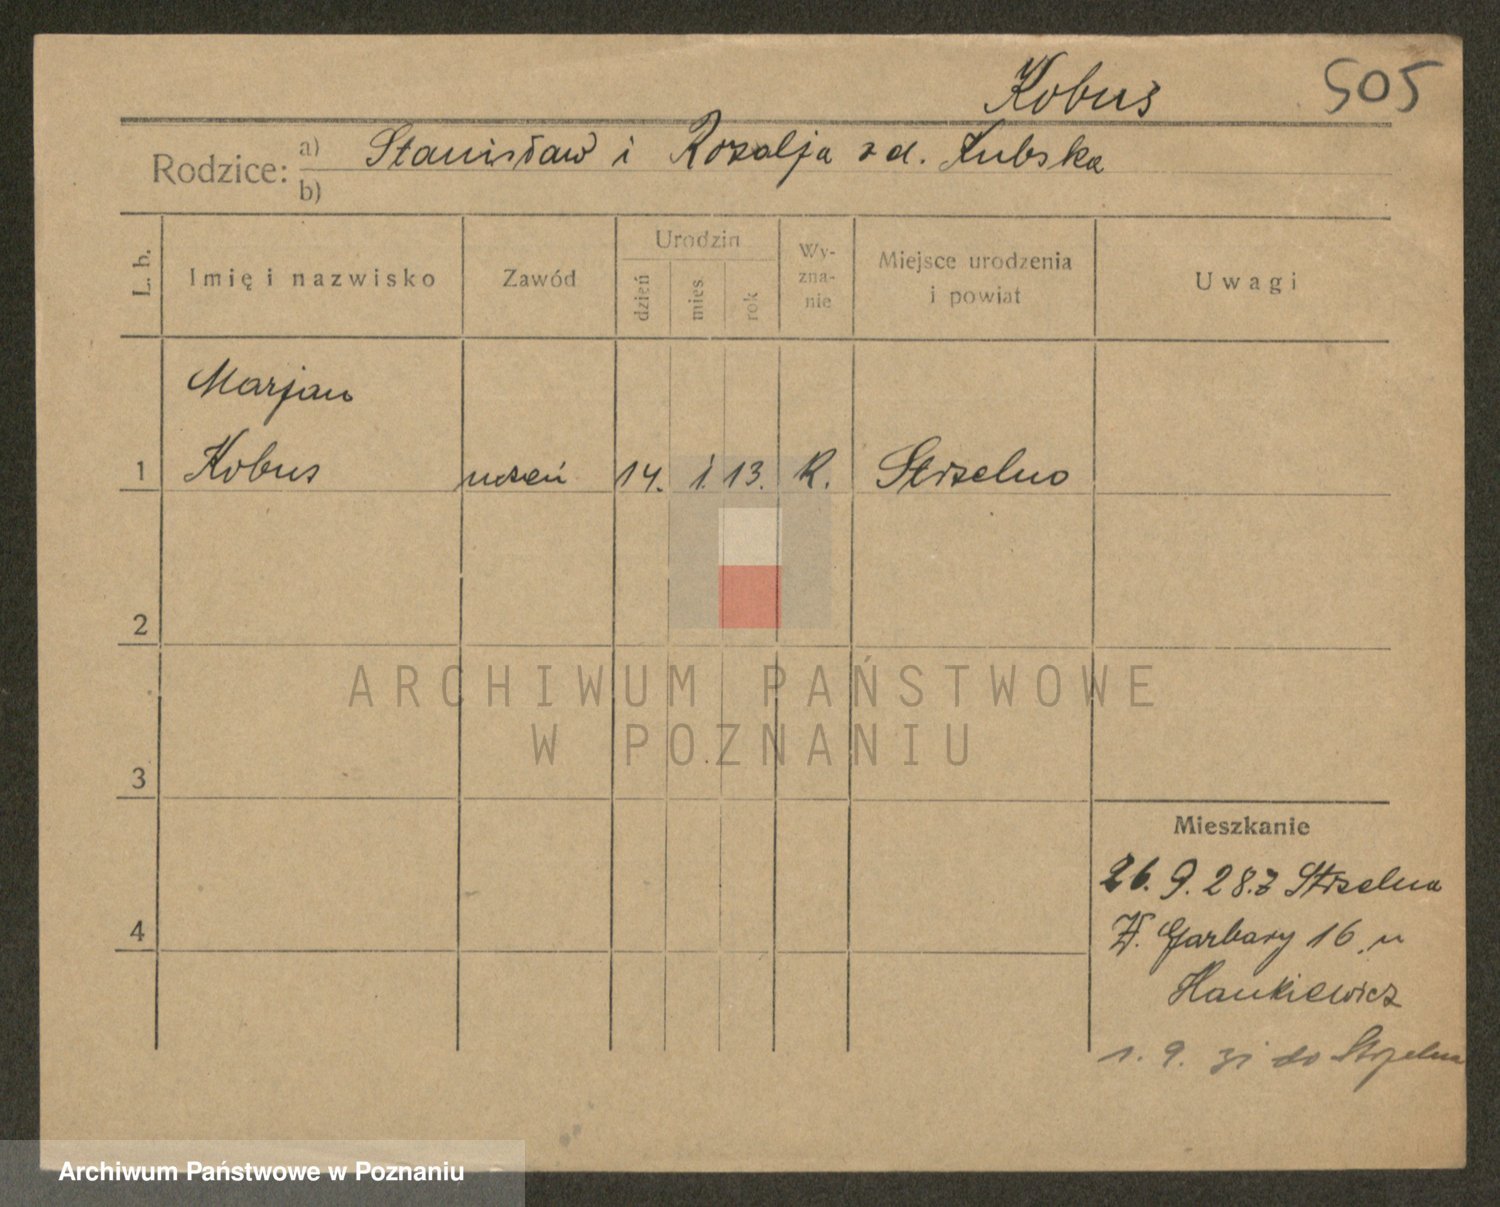 Kobus 505
Rodzice: a) Stanisław i Rozalja z d. Żubska
b)
L. b. Imię i nazwisko Zawód Urodzin dzień mies. rok Wy-zna-nie Miejsce urodzenia i powiat Uwagi
Marjan
1 Kobus uczeń 14. 1. 13. R. Strzelno
2
ARCHIWUM PAŃSTWOWE
W POZNANIU
3
Mieszkanie
26. 9. 28. z Strzelna
4 W. Garbary 16 u
Hankiewicz
1. 9. 31 do Strzelna
Archiwum Państwowe w Poznaniu